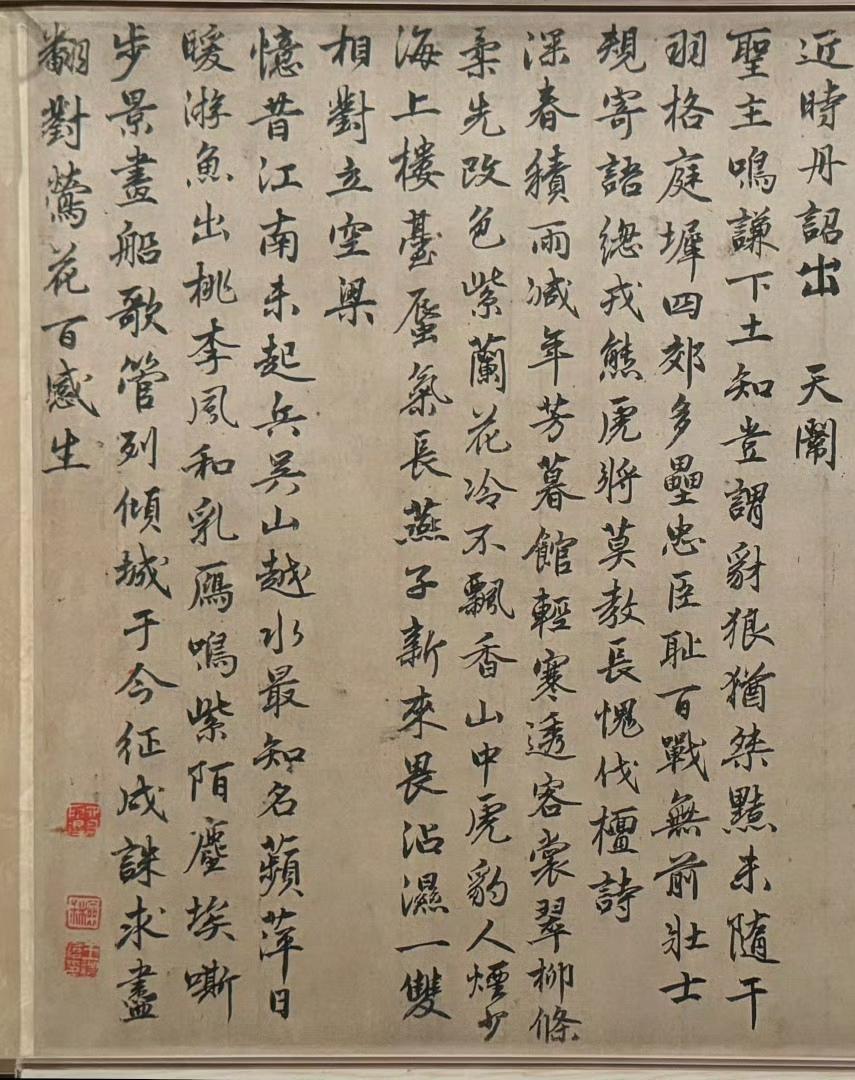 近時丹詔出　天閽
聖主鳴謙下土知豈謂豺狼猶桀黠未隨干
羽格庭墀四郊多壘忠臣耻百戰無前壯士
規寄語總戎熊虎將莫教長愧伐檀詩
深春積雨減年芳暮館輕寒透客裳翠柳條
柔先改色紫蘭花冷不飄香山中虎豹人煙少
海上樓臺蜃氣長燕子新來畏沾濕一雙
相對立空梁
憶昔江南未起兵吴山越水最知名蘋萍日
暖游魚出桃李風和乳鴈鳴紫陌塵埃嘶
步景畫船歌管列傾城于今征戍誅求盡
翻對鶯花百感生